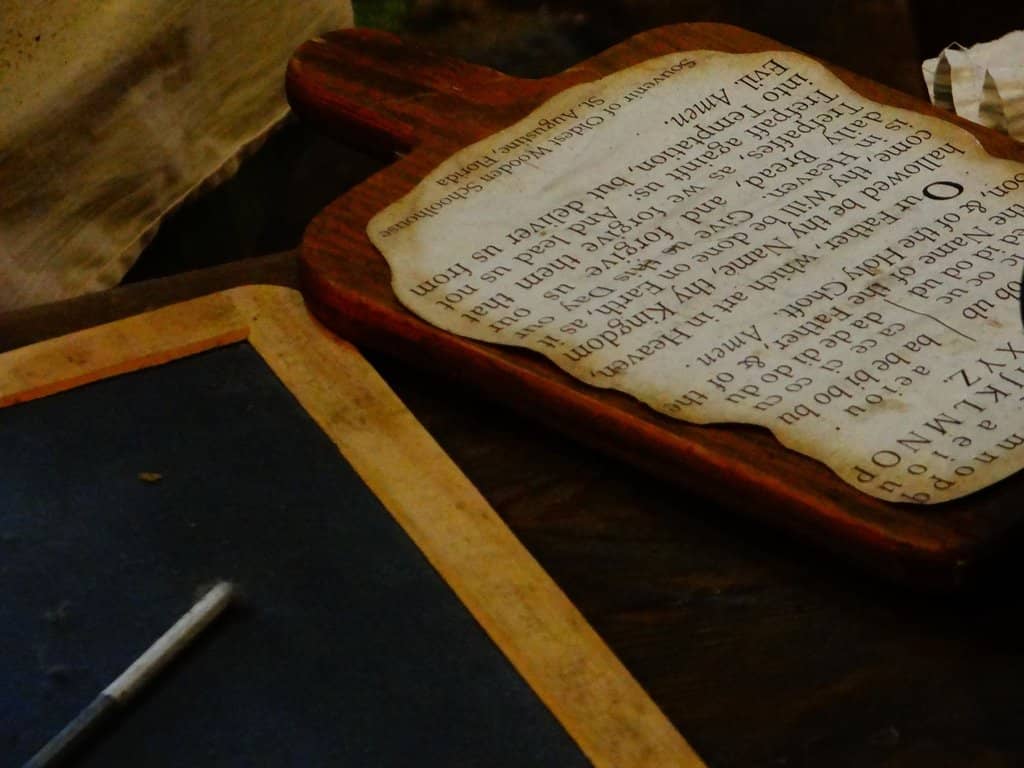 m n o p q
a e i o u
J K L M N O P
X Y Z.
a e i o u
ob ub ba be bi bo bu
oc uc ca ce ci co cu
od ud da de di do du
the Name of the Father & of the
on, & of the Holy Ghoſt. Amen.
Our Father, which art in Heaven,
hallowed be thy Name, thy Kingdom
come, thy Will be done on Earth, as it
is in Heaven. Give us this Day our
daily Bread, and forgive us our
Treſpaſſes, as we forgive them that
Treſpaſſ againſt us: And lead us not
into Temptation, but deliver us from
Evil. Amen.
Souvenir of Oldest Wooden Schoolhouse
St. Augustine, Florida